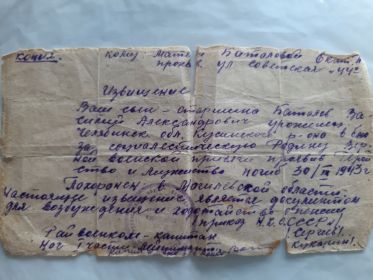 копия. копия Матери Баталовой Екат.
прожив ул Советская "44"
Извещение
Ваш сын - старшина Баталов Ва-
силий Александрович уроженец
Челябинск обл. Кусинского р-она в бою
за социалистическую Родину вер-
ной воинской присяги проявив герой
ство и мужество погиб 30/ 1943 г
Похоронен в Могилевской области.
Настоящее извещение является документом
для возбуждения и ходатайства о пенсии
приказ Н.К.О. СССР №
Райвоенком - капитан
Нач 1 части